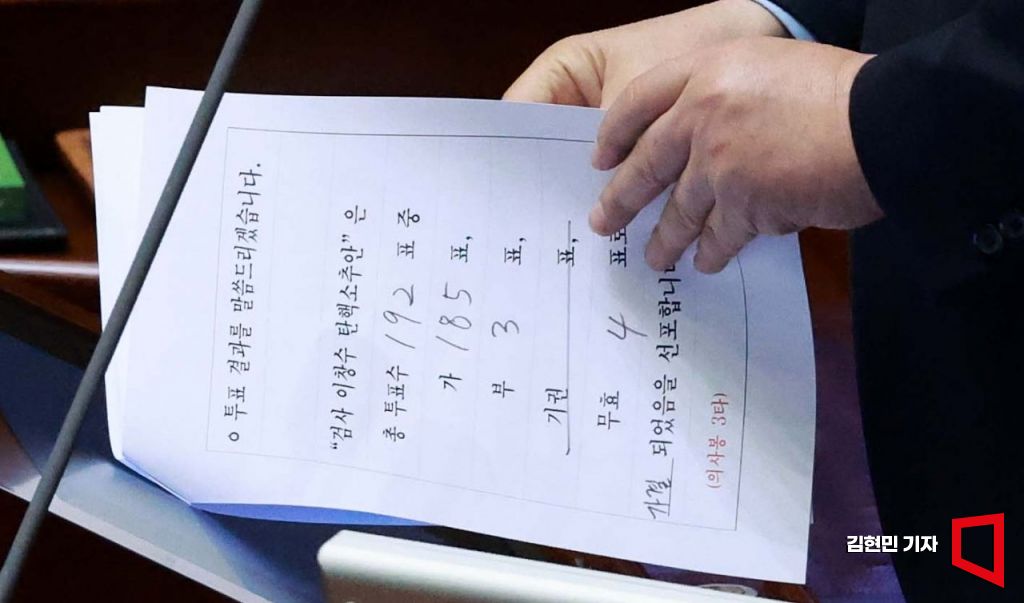 ○ 투표 결과를 말씀드리겠습니다.
“검사 이창수 탄핵소추안” 은
총 투표수 192 표 중
가 185 표,
부 3 표,
기권 표,
무효 4 표로
가결 되었음을 선포합니
(의사봉 3타)
김현민 기자